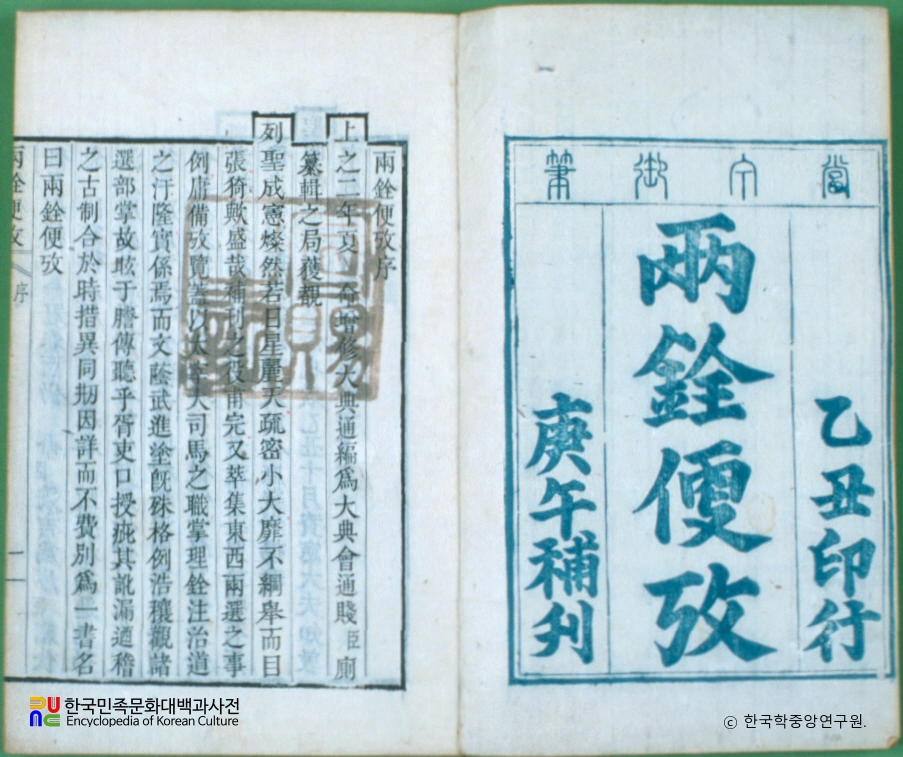 當宁御筆
乙丑印行
兩銓便攷
庚午補刋
兩銓便攷序
上之二年夏 命增修大典通編爲大典會通賤臣厠
纂輯之局獲覩
列聖成憲燦然若日星麗天疏密小大靡不綱舉而目
張猗歟盛哉補刊之役甫完又萃集東西兩選之事
例庸備攷覽蓋以太宰大司馬之職掌理銓注治道
之汙隆實係焉而文蔭武進塗旣殊格例浩穰觀諸
選部掌故眩于謄傳聽乎胥吏口授疵其訛漏遹稽
之古制合於時措異同刱因詳而不費別爲一書名
曰兩銓便攷
兩銓便攷 序 一
한국민족문화대백과사전
Encyclopedia of Korean Culture
© 한국학중앙연구원.